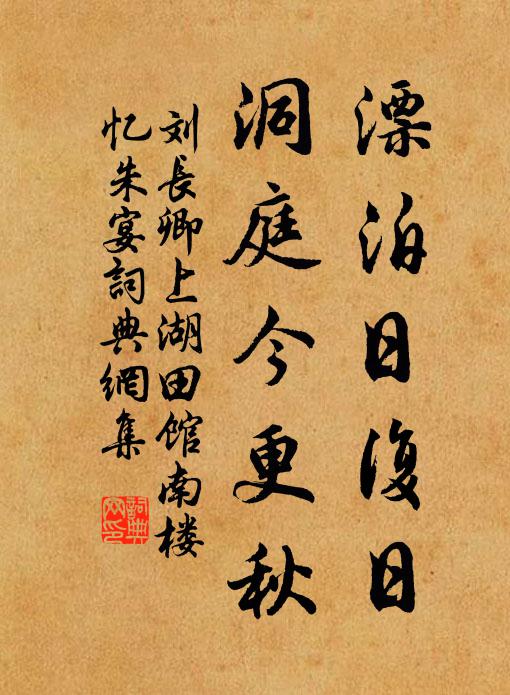 漂泊日復日
洞庭今更秋
刘長卿上湖田馆南楼
忆朱宴詞典網集
詞典
网印